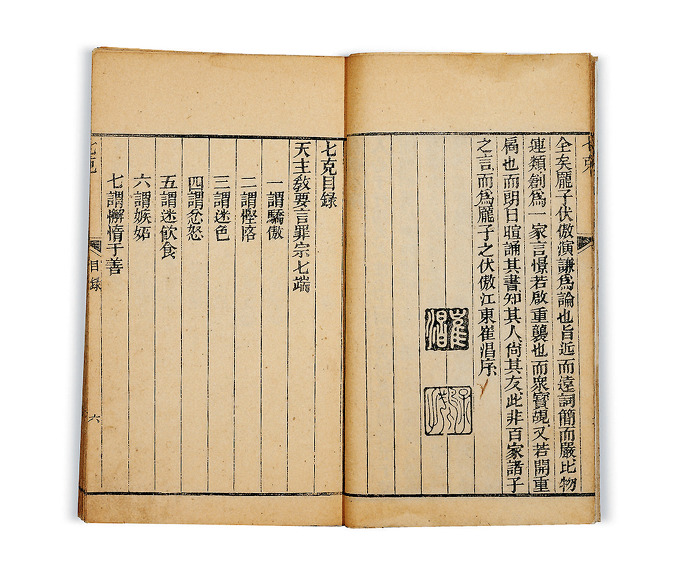 全矣龐子伏傲演謙為論也旨近而遠詞簡而嚴比物
連類創為一家言憬若啟重襲也而衆寶覩又若開重
扃也而明日暄誦其書知其人尙其友此非百家諸子
之言而為龐子之伏傲江東崔淐序
崔淐
七克目錄
天主敎要言罪宗七端
一謂驕傲
二謂慳悋
三謂迷色
四謂忿怒
五謂迷飲食
六謂嫉妬
七謂懈惰于善
七克
目錄
六